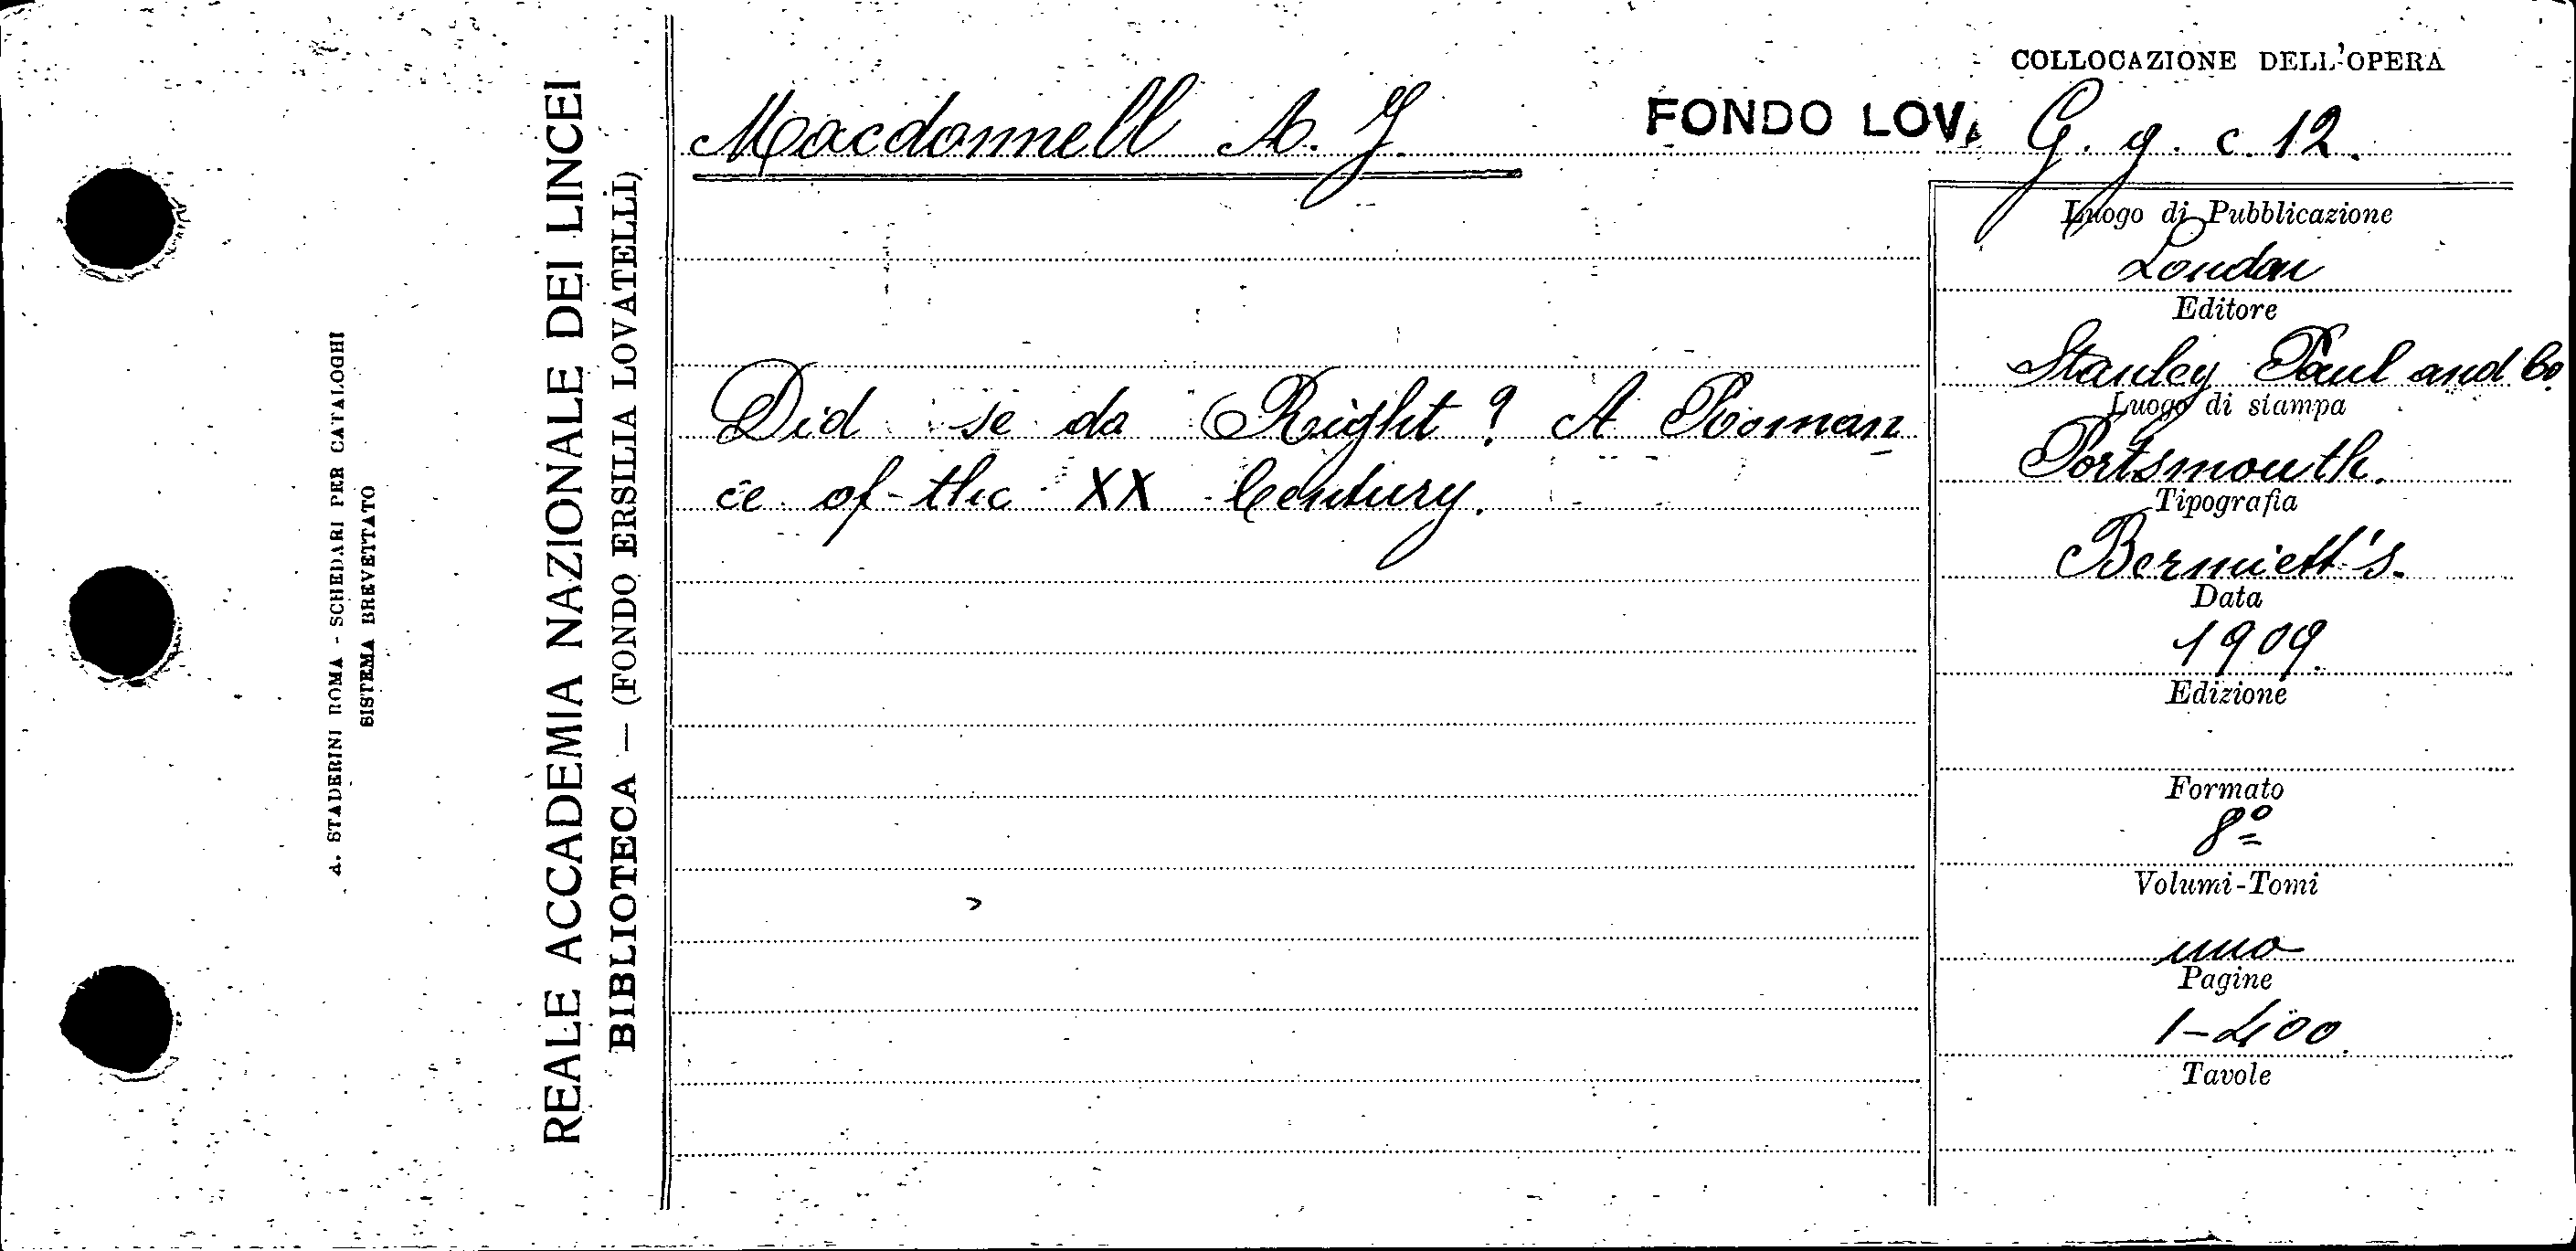 COLLOCAZIONE DELL'OPERA
Macdonnell A. J.
FONDO LOV. G. g. c. 12.
Did se do Right? A Roman
ce of the XX Century.
Luogo di Pubblicazione
London
Editore
Stanley Paul and Co.
Luogo di stampa
Portsmouth.
Tipografia
Data
1909.
Edizione
Formato
8º
Volumi-Tomi
uno
Pagine
1-400.
Tavole
REALE ACCADEMIA NAZIONALE DEI LINCEI
BIBLIOTECA — (FONDO ERSILIA LOVATELLI)
A. STADERINI ROMA - SCHEDARI PER CATALOGHI
SISTEMA BREVETTATO